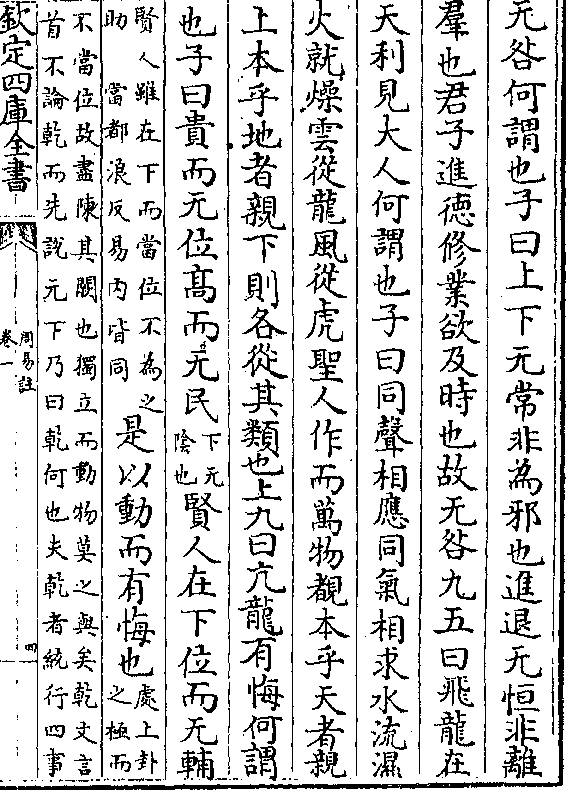 无咎何謂也子曰上下无常非為邪也進退无恒非離
羣也君子進德修業欲及時也故无咎九五曰飛龍在
天利見大人何謂也子曰同聲相應同氣相求水流濕
火就燥雲從龍風從虎聖人作而萬物覩本乎天者親
上本乎地者親下則各從其類也上九曰亢龍有悔何謂
也子曰貴而无位髙而无民
下无
陰也
賢人在下位而无輔
賢人雖在下而當位不為之
助 當都浪反易内皆同
是以動而有悔也
處上卦
之極而
不當位故盡陳其闕也獨立而動物莫之與矣乾文言
首不論乾而先說元下乃曰乾何也夫乾者統行四事
欽定四庫全書
周易註
卷一
四